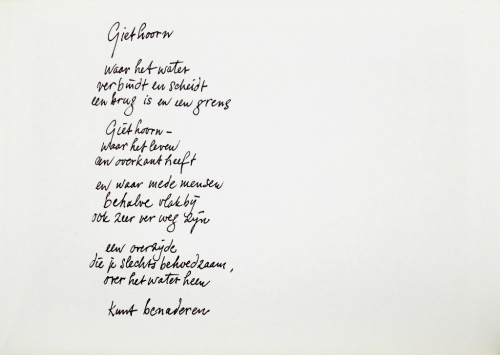 Giethoorn
waar het water
verbindt en scheidt
een brug is en een grens
Giethoorn –
waar het leven
een overkant heeft
en waar mede mensen
behalve vlakbij
ook zeer ver weg zijn
een overzijde
die je slechts behoedzaam,
over het water heen
kunt benaderen